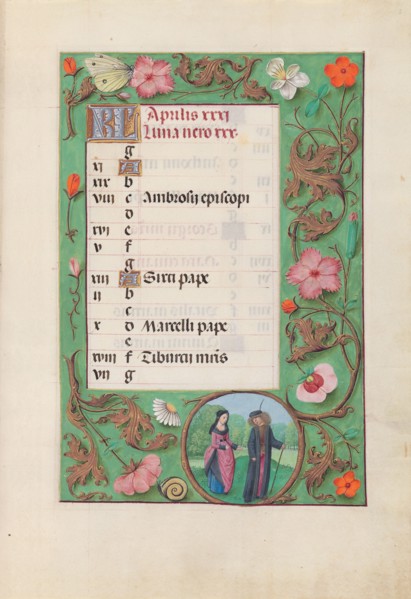 KL Aprilis xxxi
Luna vero xxx.
g
xi A
xix b
viii c Ambrosij episcopi
d
xvi e
v f
g
xiii A Sixti pape
ii b
c
x d Marcelli pape
e
xviii f Tiburcij mris
vii g